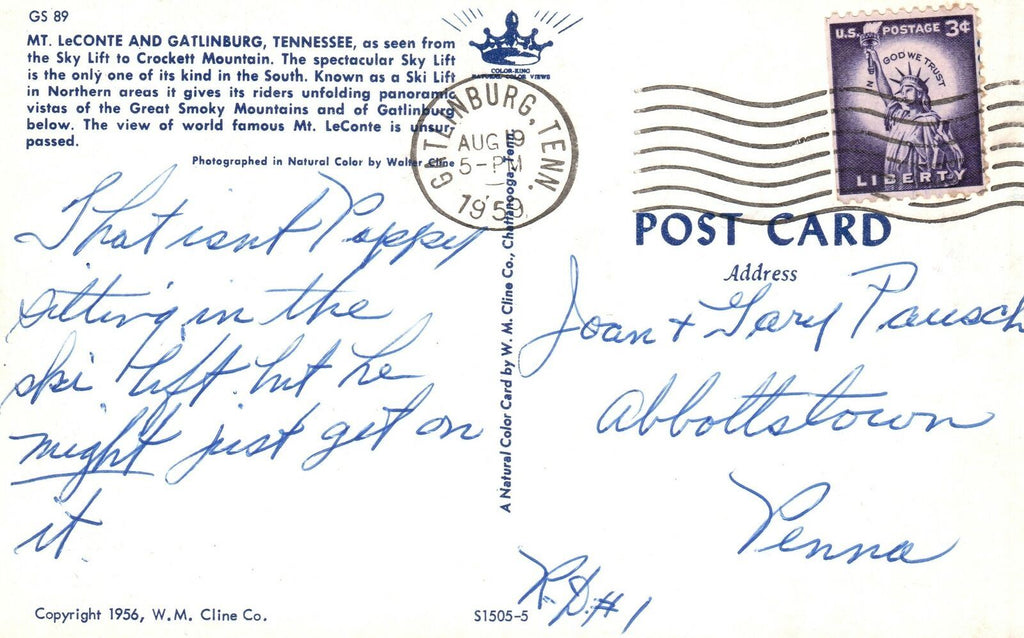 GS 89
MT. LeCONTE AND GATLINBURG, TENNESSEE, as seen from
the Sky Lift to Crockett Mountain. The spectacular Sky Lift
is the only one of its kind in the South. Known as a Ski Lift
in Northern areas it gives its riders unfolding panoramic
vistas of the Great Smoky Mountains and of Gatlinburg
below. The view of world famous Mt. LeConte is unsur-
passed.
Photographed in Natural Color by Walter Cline
COLOR-KING
NATURAL COLOR VIEWS
GATLINBURG, TENN.
AUG 19
5-PM
1959
U.S. POSTAGE 3¢
IN GOD WE TRUST
LIBERTY
That isnt Poppy
sitting in the
ski lift but he
might just get on
it
A Natural Color Card by W. M. Cline Co., Chattanooga, Tenn.
POST CARD
Address
Joan + Gary Pausch
Abbottstown
Penna
R.D.#1
Copyright 1956, W.M. Cline Co.
S1505-5